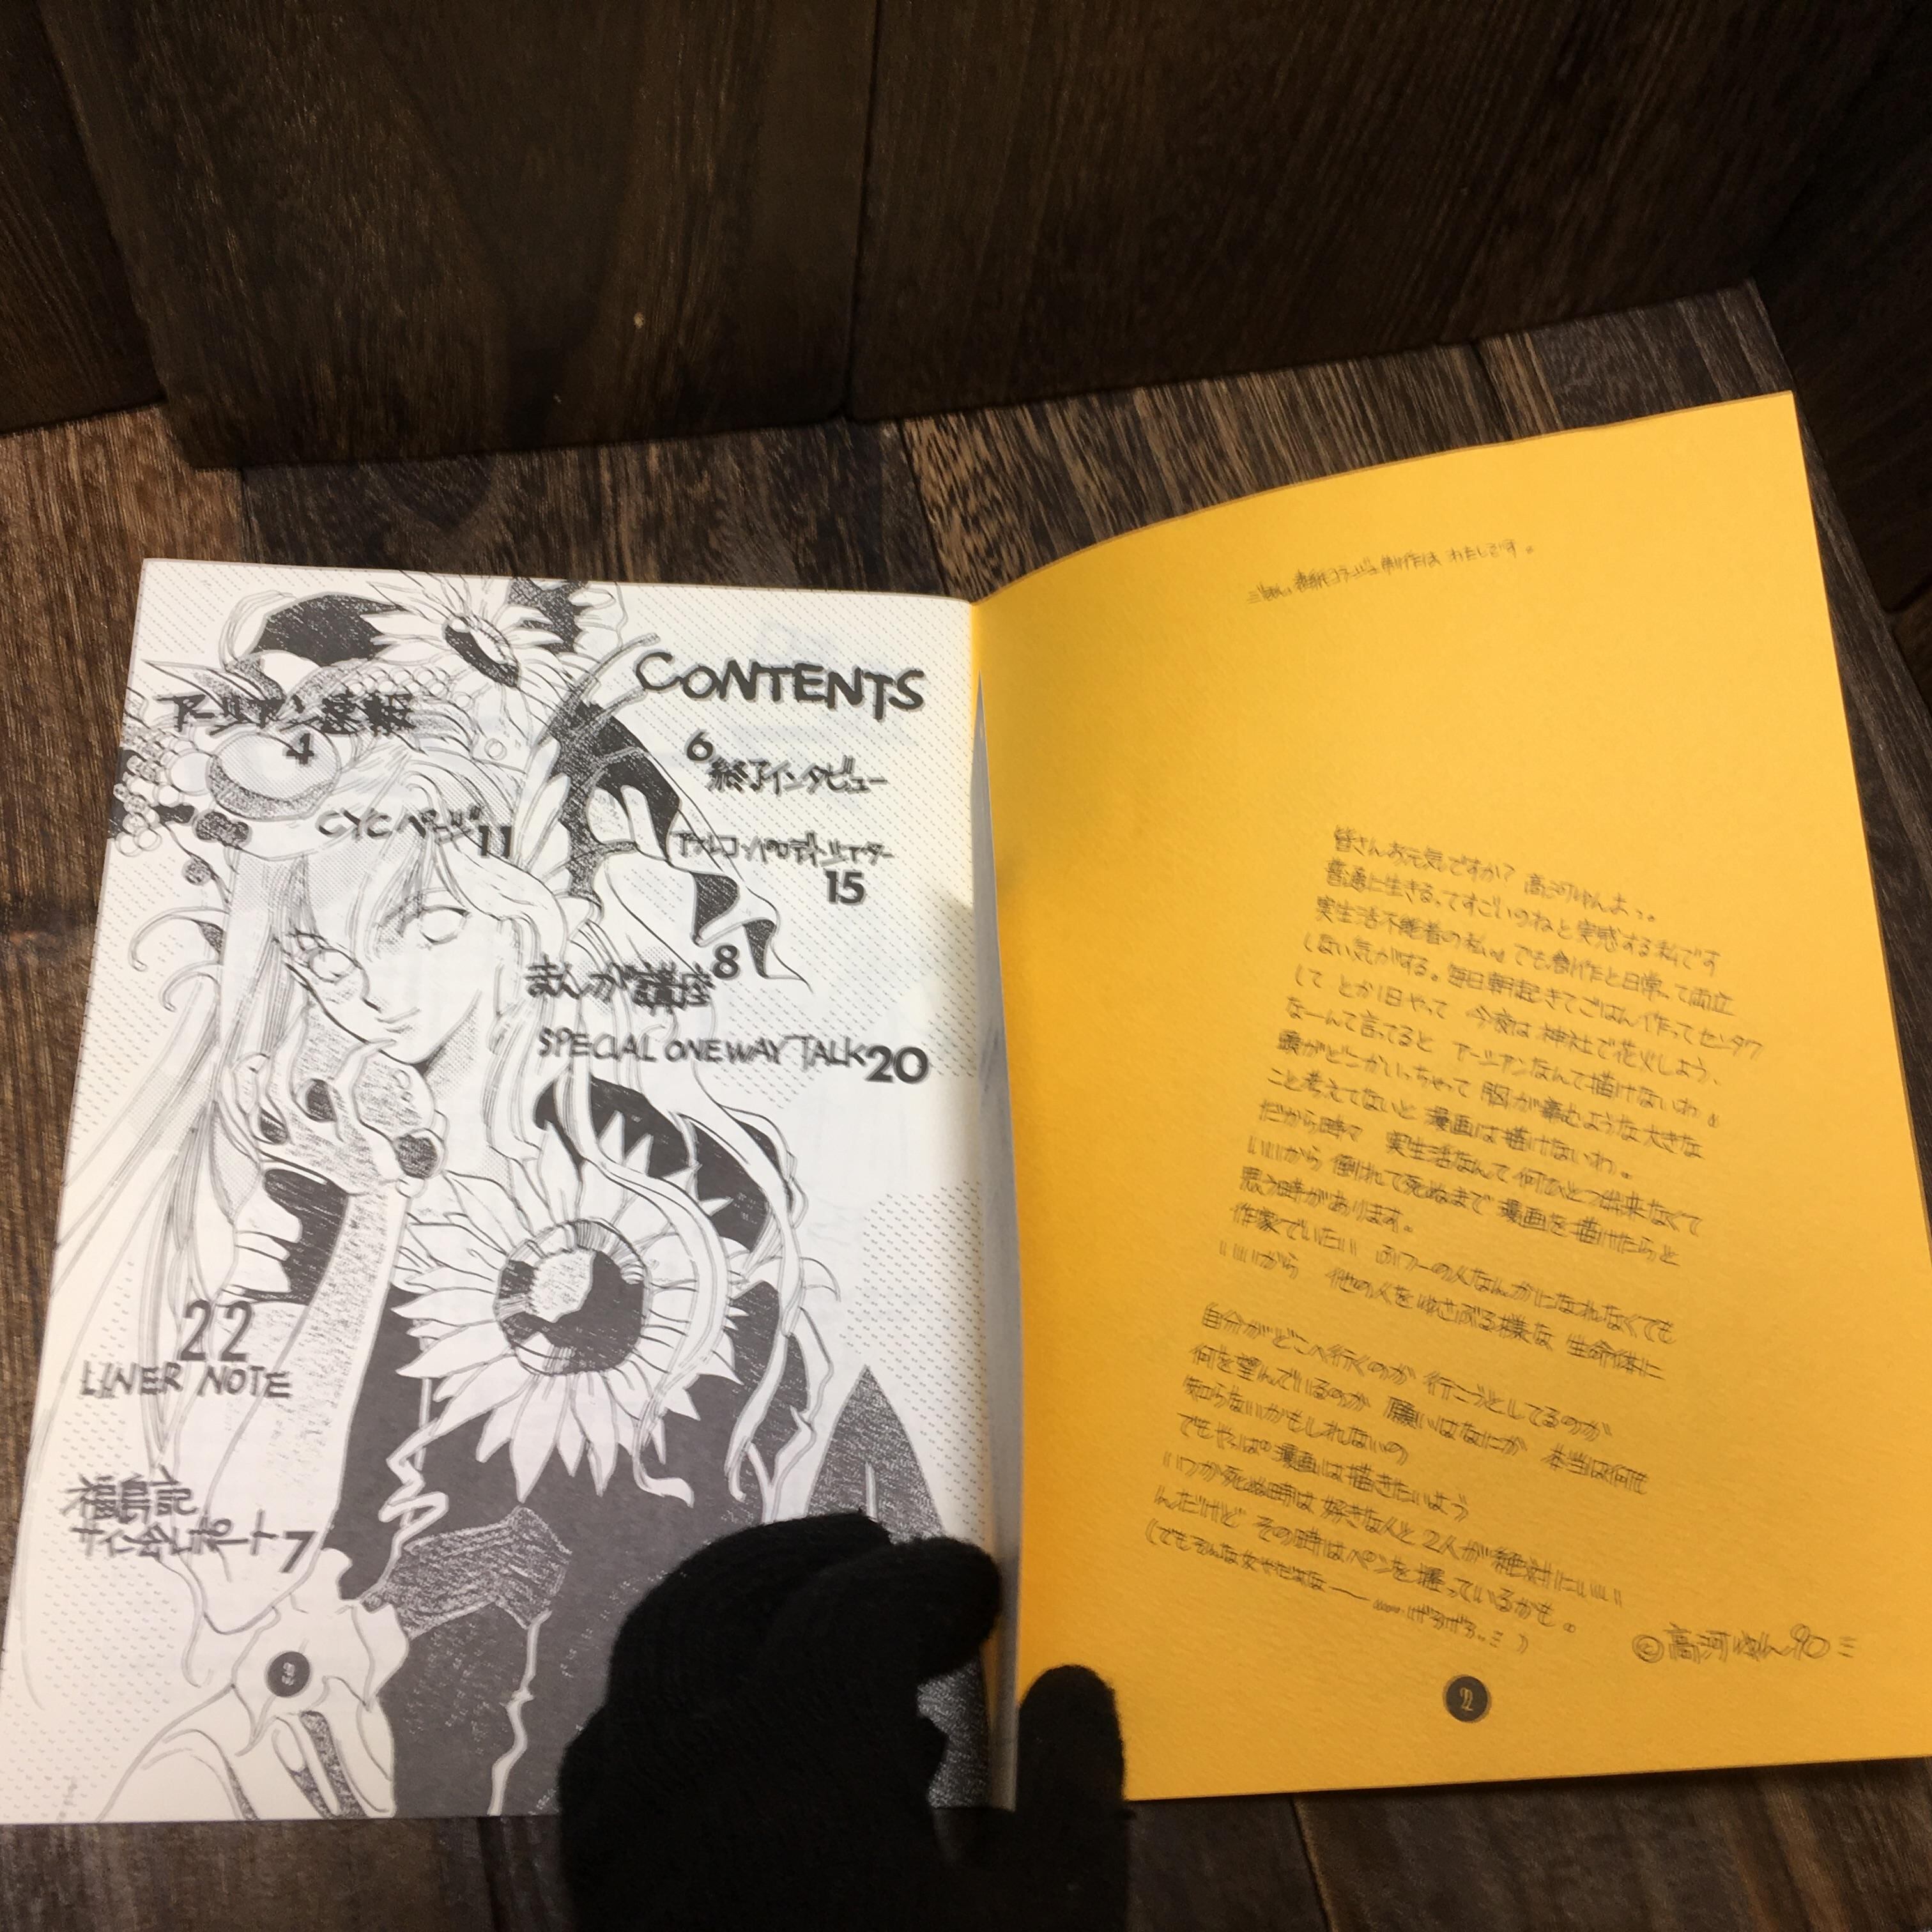 三判い表紙コラージュ制作は わたしです。
皆さんお元気ですか? 高河ゆんよっ。
普通に生きるってすごいのねと実感する私です
実生活不能者の私。でも創作と日常って両立
しない気がする。毎日朝起きてごはん作ってセンタク
して とか1日やって 今夜は神社で花火しよう、
なーんて言ってると アーシアンなんて描けないわ。
頭がどこかいっちゃって 胸が痛むような大きな
こと考えてないと 漫画は描けないわ。
だから時々 実生活なんて何ひとつ出来なくて
いいから 倒れて死ぬまで 漫画を描けたらと
思う時があります。
作家でいたい ふつーの人なんかになれなくても
いいから 他の人をゆさぶる様な 生命体に
自分がどこへ行くのか 行こうとしてるのか
何を望んでいるのか 願いはなにか 本当は何も
知らないかもしれないの
でもやっぱ漫画は描きたいよう
いつか死ぬ時は 好きな人と2人が絶対にいい
んだけど その時はペンを握っているかも。
(でもそんな女やだなー
©高河ゆん90
2
CONTENTS
アーシアン速報
4
6
終了インタビュー
CYCページ 11
15
8
まんが講座
SPECIAL ONE WAY TALK 20
22
LINER NOTE
福島記
サイン会レポート 7
3